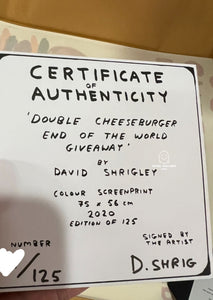 CERTIFICATE
OF
AUTHENTICITY
'DOUBLE CHEESEBURGER
END OF THE WORLD
GIVEAWAY'
BY
DAVID SHRIGLEY
COLOUR SCREENPRINT
75 x 56 cm
2020
EDITION OF 125
NUMBER
/125
SIGNED BY
THE ARTIST
D. SHRIG